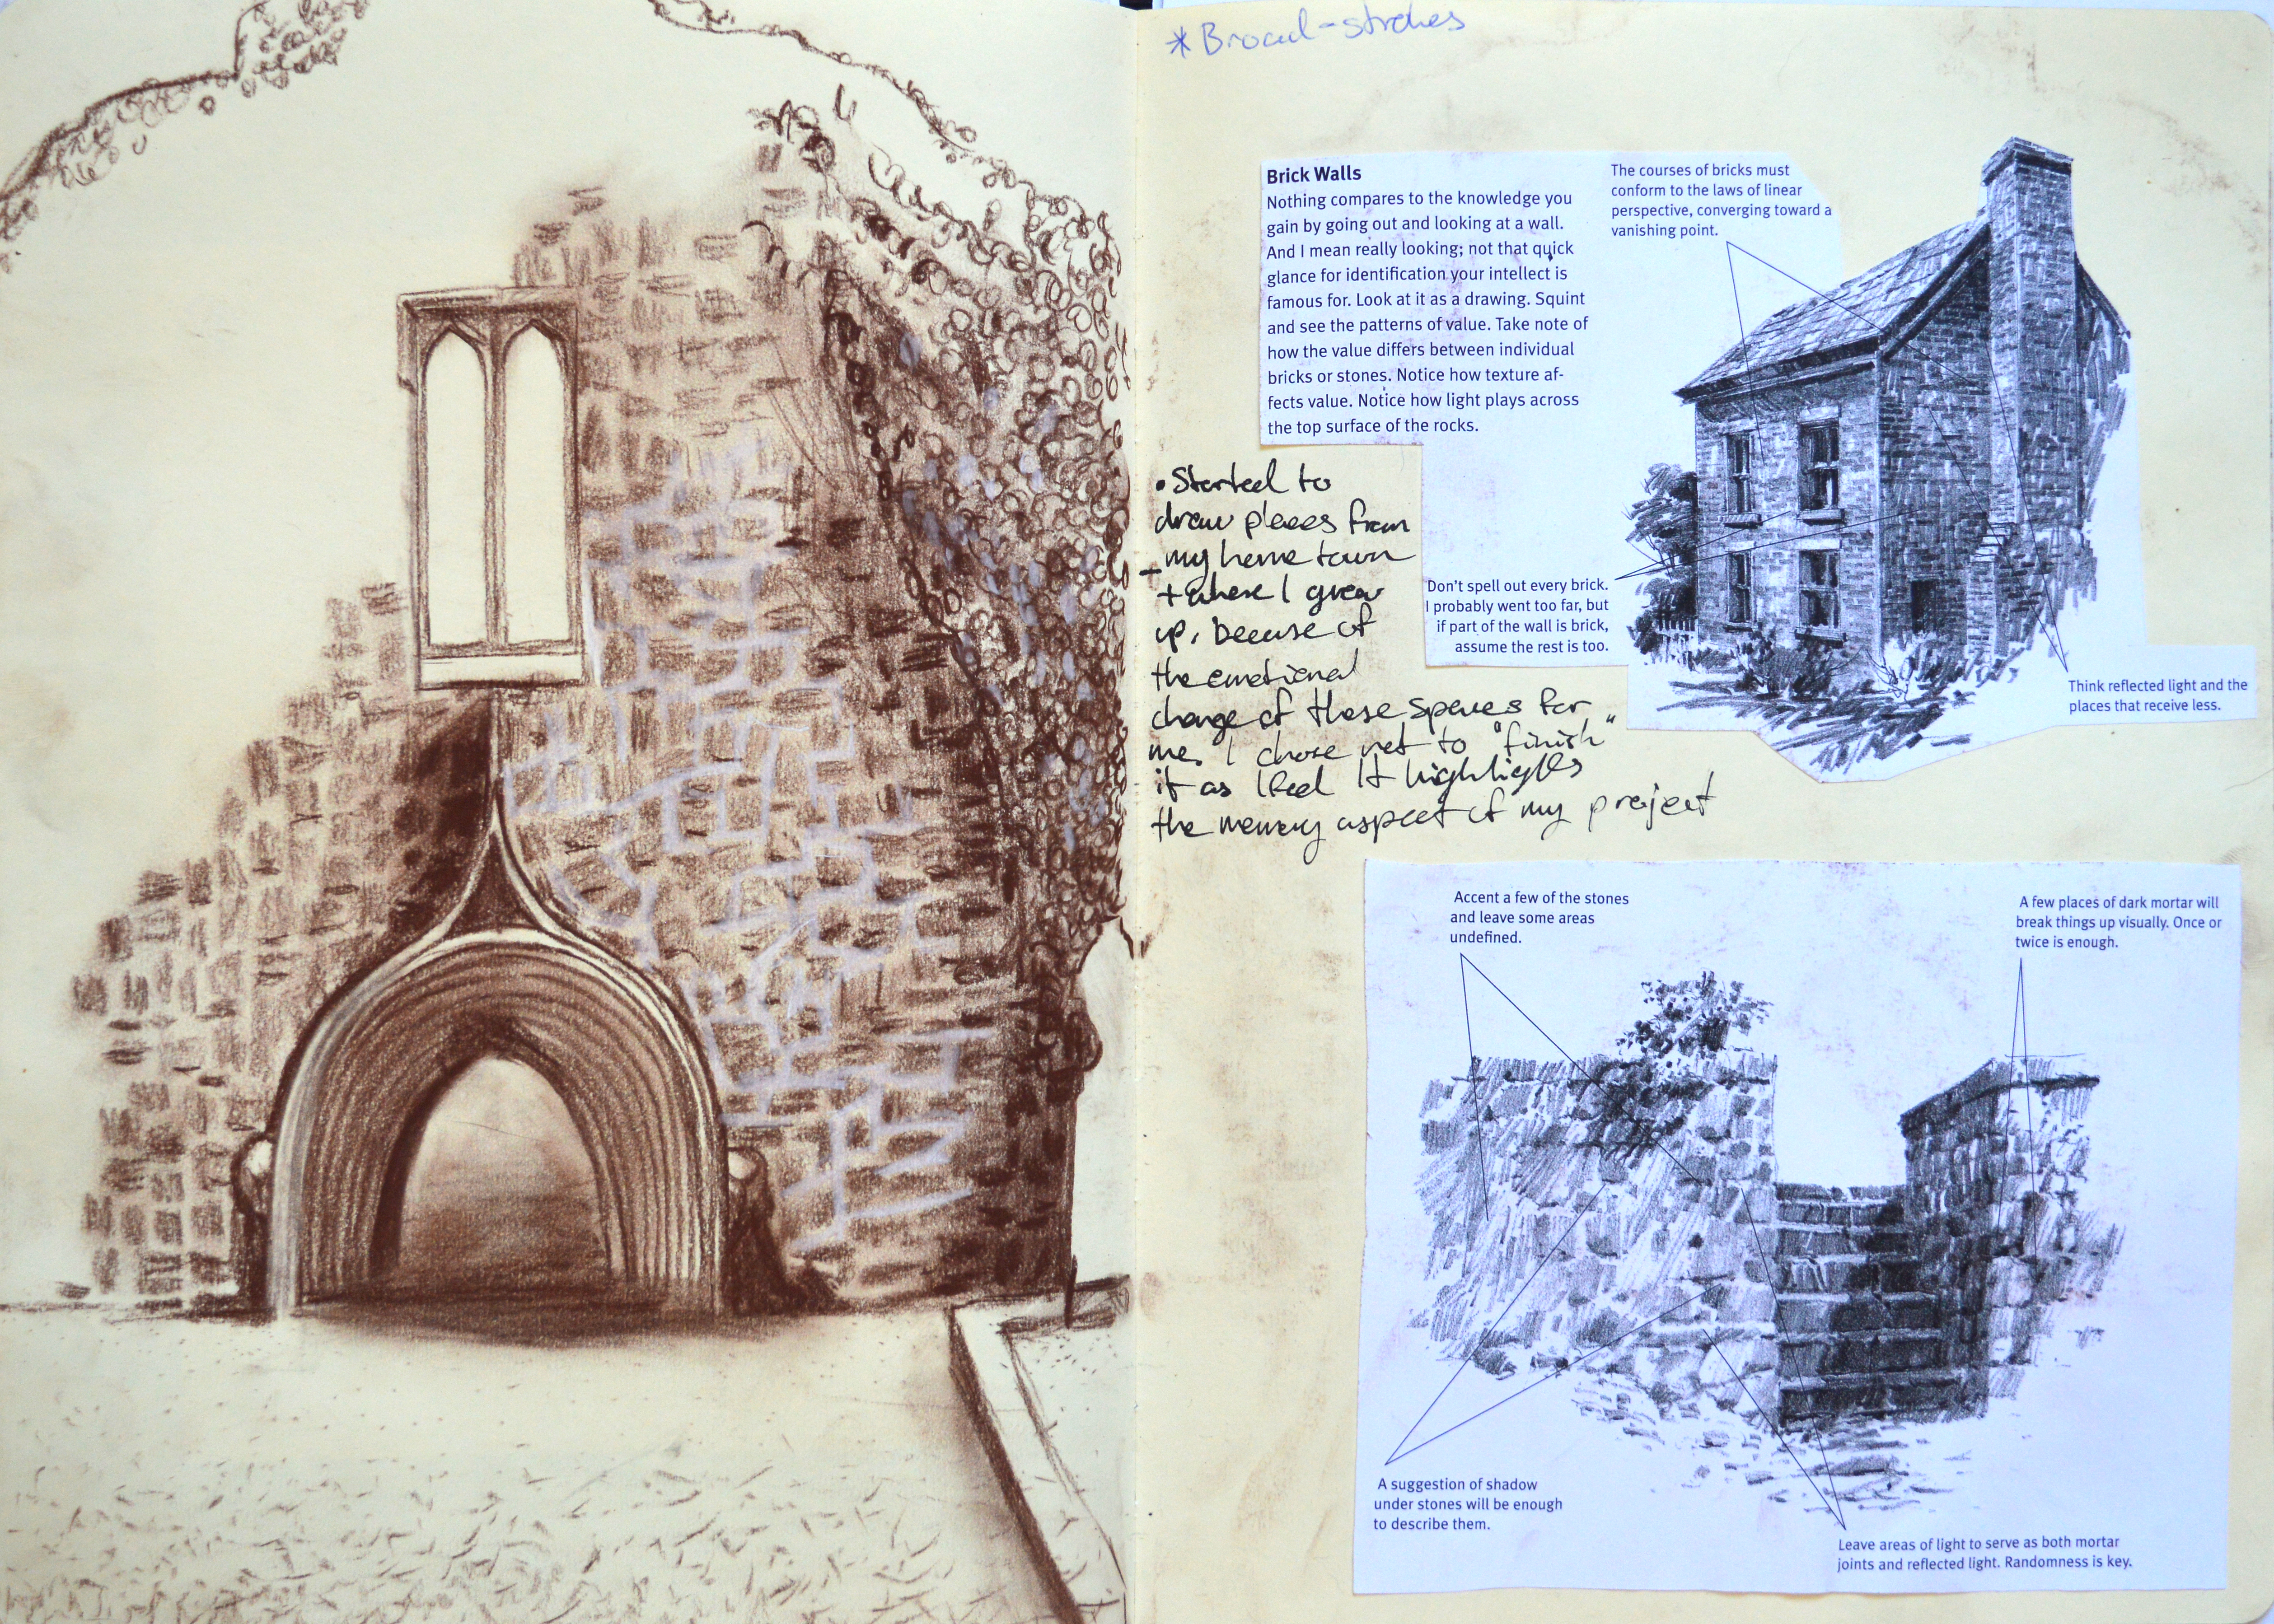 *Broad-strokes
Brick Walls
Nothing compares to the knowledge you
gain by going out and looking at a wall.
And I mean really looking; not that quick
glance for identification your intellect is
famous for. Look at it as a drawing. Squint
and see the patterns of value. Take note of
how the value differs between individual
bricks or stones. Notice how texture af-
fects value. Notice how light plays across
the top surface of the rocks.
The courses of bricks must
conform to the laws of linear
perspective, converging toward a
vanishing point.
Don't spell out every brick.
I probably went too far, but
if part of the wall is brick,
assume the rest is too.
Think reflected light and the
places that receive less.
• Started to
draw places from
my home town
+ where I grew
up, because of
the emotional
charge of these spaces for
me. I chose not to "finish"
it as I feel it highlights
the memory aspect of my project
Accent a few of the stones
and leave some areas
undefined.
A few places of dark mortar will
break things up visually. Once or
twice is enough.
A suggestion of shadow
under stones will be enough
to describe them.
Leave areas of light to serve as both mortar
joints and reflected light. Randomness is key.